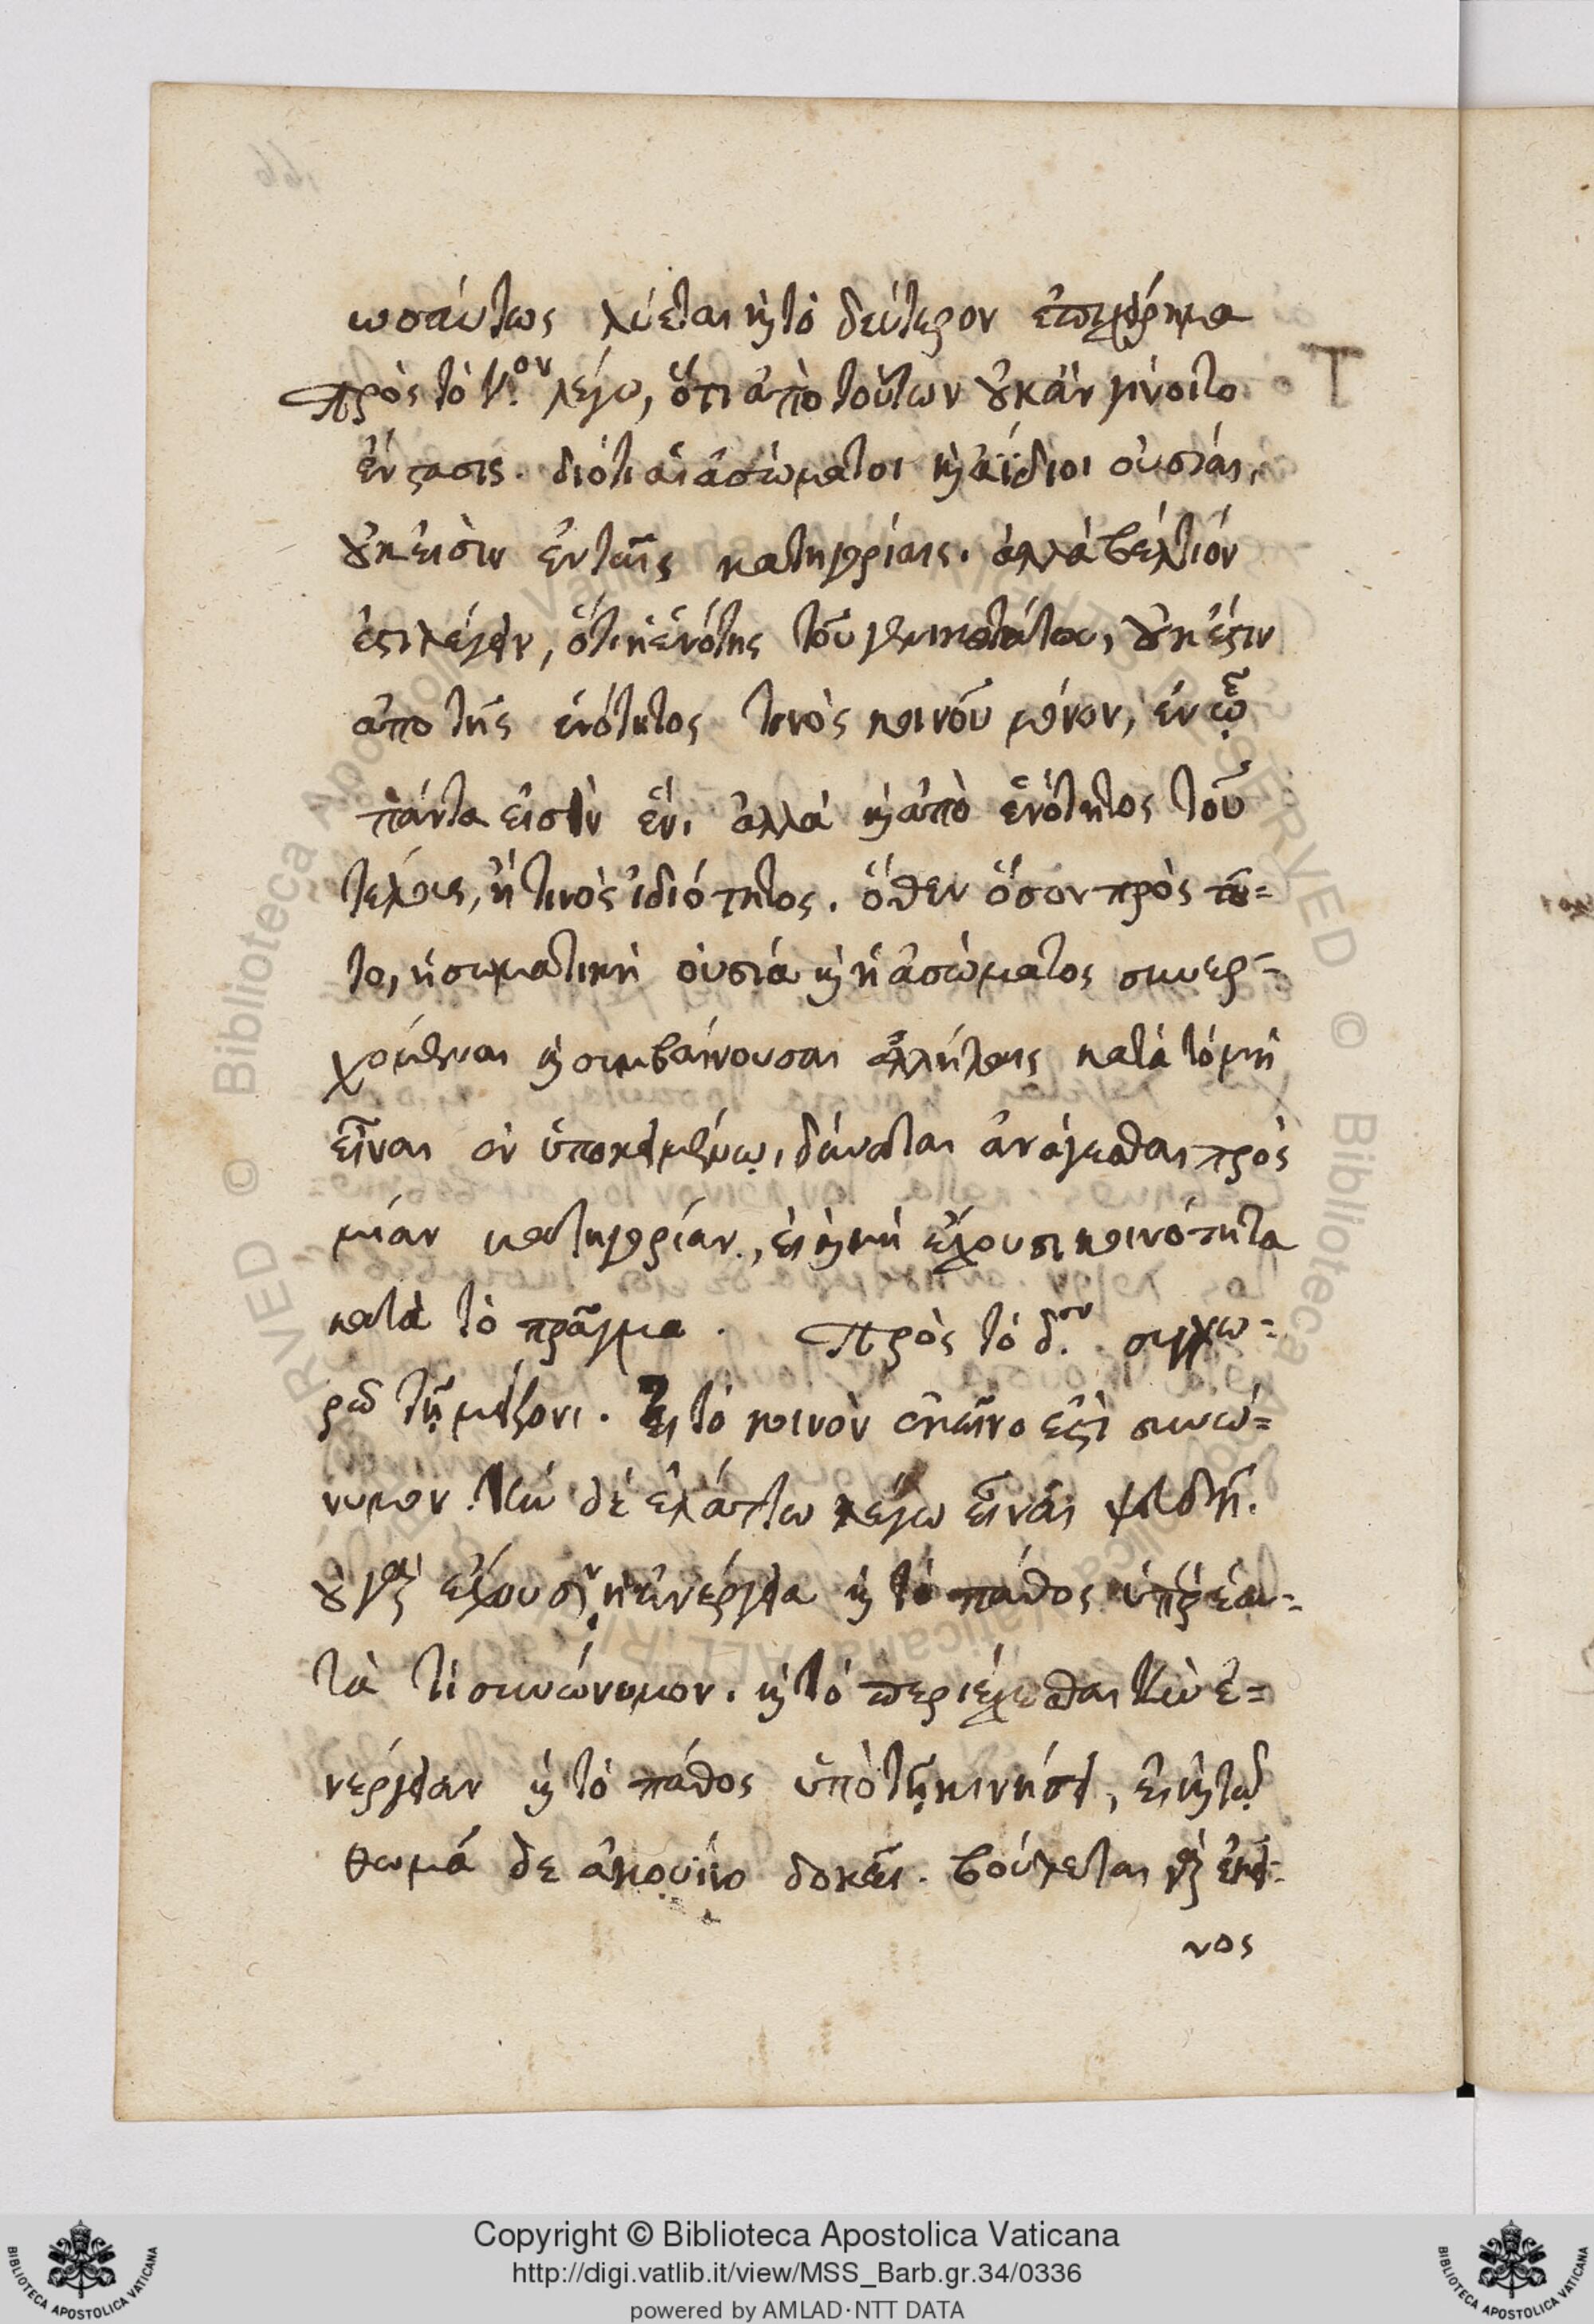 ωσαύτως λύεται καὶ τὸ δεύτερον ἐπιχείρημα
Πρὸς τὸ γ.ον λέγω, ὅτι ἀπὸ τούτων οὐκ ἂν γίνοιτο
ἔνστασις. διότι αἱ ἀσώματοι καὶ ἀΐδιοι οὐσίαι,
οὐκ εἰσὶν ἐν ταῖς κατηγορίαις. ἀλλὰ βέλτιόν
ἐστι λέγειν, ὅτι ἡ ἑνότης τοῦ γενικωτάτου, οὐκ ἔστιν
ἀπο τῆς ἑνότητος τινὸς κοινοῦ μόνον, ἐν ᾧ
πάντα εἰσὶν ἕν, ἀλλὰ καὶ ἀπὸ ἑνότητος τοῦ
τέλους, ἢ τινὸς ἰδιότητος. ὅθεν ὅσον πρὸς τοῦ=
το, ἡ σωματικὴ οὐσία καὶ ἡ ἀσώματος συνερ=
χόμεναι καὶ συμβαίνουσαι ἀλλήλαις κατὰ τὸ μὴ
εἶναι ἐν ὑποκειμένῳ, δύναται ἀνάγεσθαι πρὸς
μίαν κατηγορίαν, εἰ καὶ μὴ ἔχουσι κοινότητα
κατὰ τὸ πρᾶγμα. Πρὸς τὸ δ.ον συγχω=
ρῶ τῇ μείζονι. εἰ τὸ κοινὸν ἐκεῖνο ἐστὶ συνώ=
νυμον. τὴν δὲ ἐλάττω λέγω εἶναι ψευδῆ.
οὐ γὰρ ἔχουσιν ἡ ἐνέργεια καὶ τὸ πάθος ὑπὲρ ἑαυ=
τὰ τὶ συνώνυμον. καὶ τὸ περιέχεσθαι τὴν ἐ=
νέργειαν καὶ τὸ πάθος ὑπὸ τῇ κινήσει, εἰ καὶ τῷ
θωμᾷ δε ἀκουίνο δοκεῖ. βούλεται γὰρ ἐκεῖ=
νος
Copyright © Biblioteca Apostolica Vaticana
http://digi.vatlib.it/view/MSS_Barb.gr.34/0336
powered by AMLAD·NTT DATA